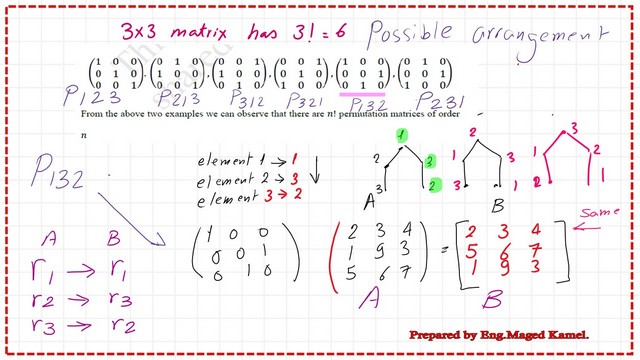 3x3 matrix has 3! = 6 Possible arrangement
(1 0 0), (0 1 0), (0 0 1), (0 0 1), (1 0 0), (0 1 0)
(0 1 0), (1 0 0), (1 0 0), (0 1 0), (0 0 1), (0 0 1)
(0 0 1), (0 0 1), (0 1 0), (1 0 0), (0 1 0), (1 0 0)
P123 P213 P312 P321 P132 P231
From the above two examples we can observe that there are n! permutation matrices of order
n
P132
element 1 → 1
element 2 → 3
element 3 → 2
1
2 3
3 2
A
2
1 3
3 1
B
3
1 2
2 1
A B
r1 → r1
r2 → r3
r3 → r2
1 0 0
0 0 1
0 1 0
2 3 4
1 9 3
5 6 7
A
=
2 3 4
5 6 7
1 9 3
B
Same
Prepared by Eng.Maged Kamel.